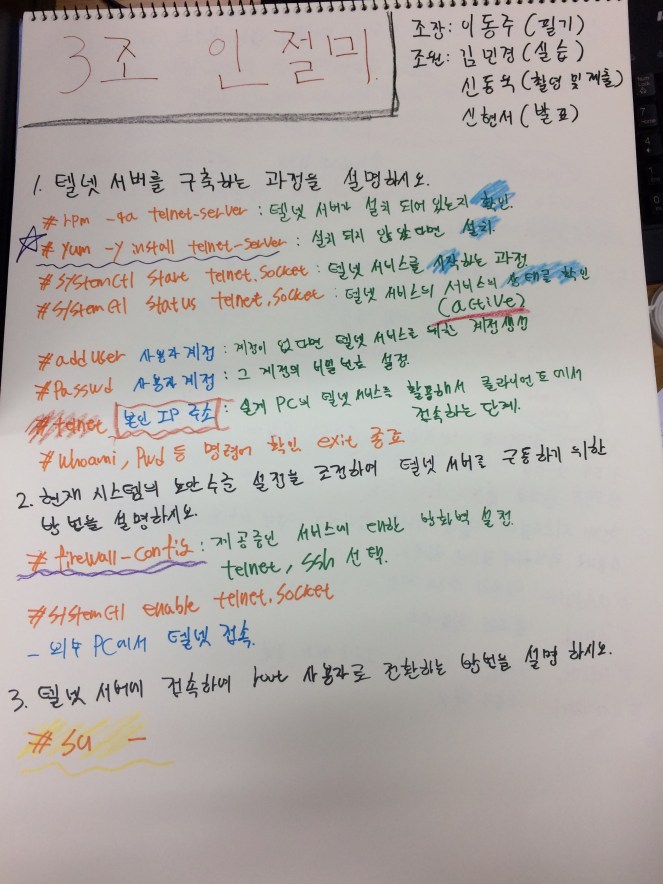 3조 인절미
조장: 이동주 (필기)
조원: 김민경 (실습)
신동욱 (촬영 및 제출)
신현서 (발표)
1. 텔넷 서버를 구축하는 과정을 설명하시오.
# rpm -qa telnet-server : 텔넷 서버가 설치 되어 있는지 확인.
☆ # yum -y install telnet-server : 설치 되지 않았다면 설치.
# systemctl start telnet.socket : 텔넷 서비스를 시작하는 과정
# systemctl status telnet.socket : 텔넷 서비스의 서비스의 상태를 확인
(active)
# adduser 사용자계정 : 계정이 없다면 텔넷 서비스로 대한 계정생성
# passwd 사용자 계정 : 그 계정의 비밀번호 설정.
# telnet 본인 IP 주소 : 실게 PC의 텔넷 서비스를 활용해서 클라이언트에서
접속하는 단계.
# whoami, pwd 등 명령어 확인 exit 종료
2. 현재 시스템의 보안수준 설정을 조정하여 텔넷 서버로 구동하기 위한
방법을 설명하시오.
# firewall-config : 제공중인 서비스에 대한 방화벽 설정.
telnet, ssh 선택.
# systemctl enable telnet.socket
- 외부 PC에서 텔넷 접속.
3. 텔넷 서버에 접속하여 root 사용자로 전환하는 방법을 설명 하시오.
# su -